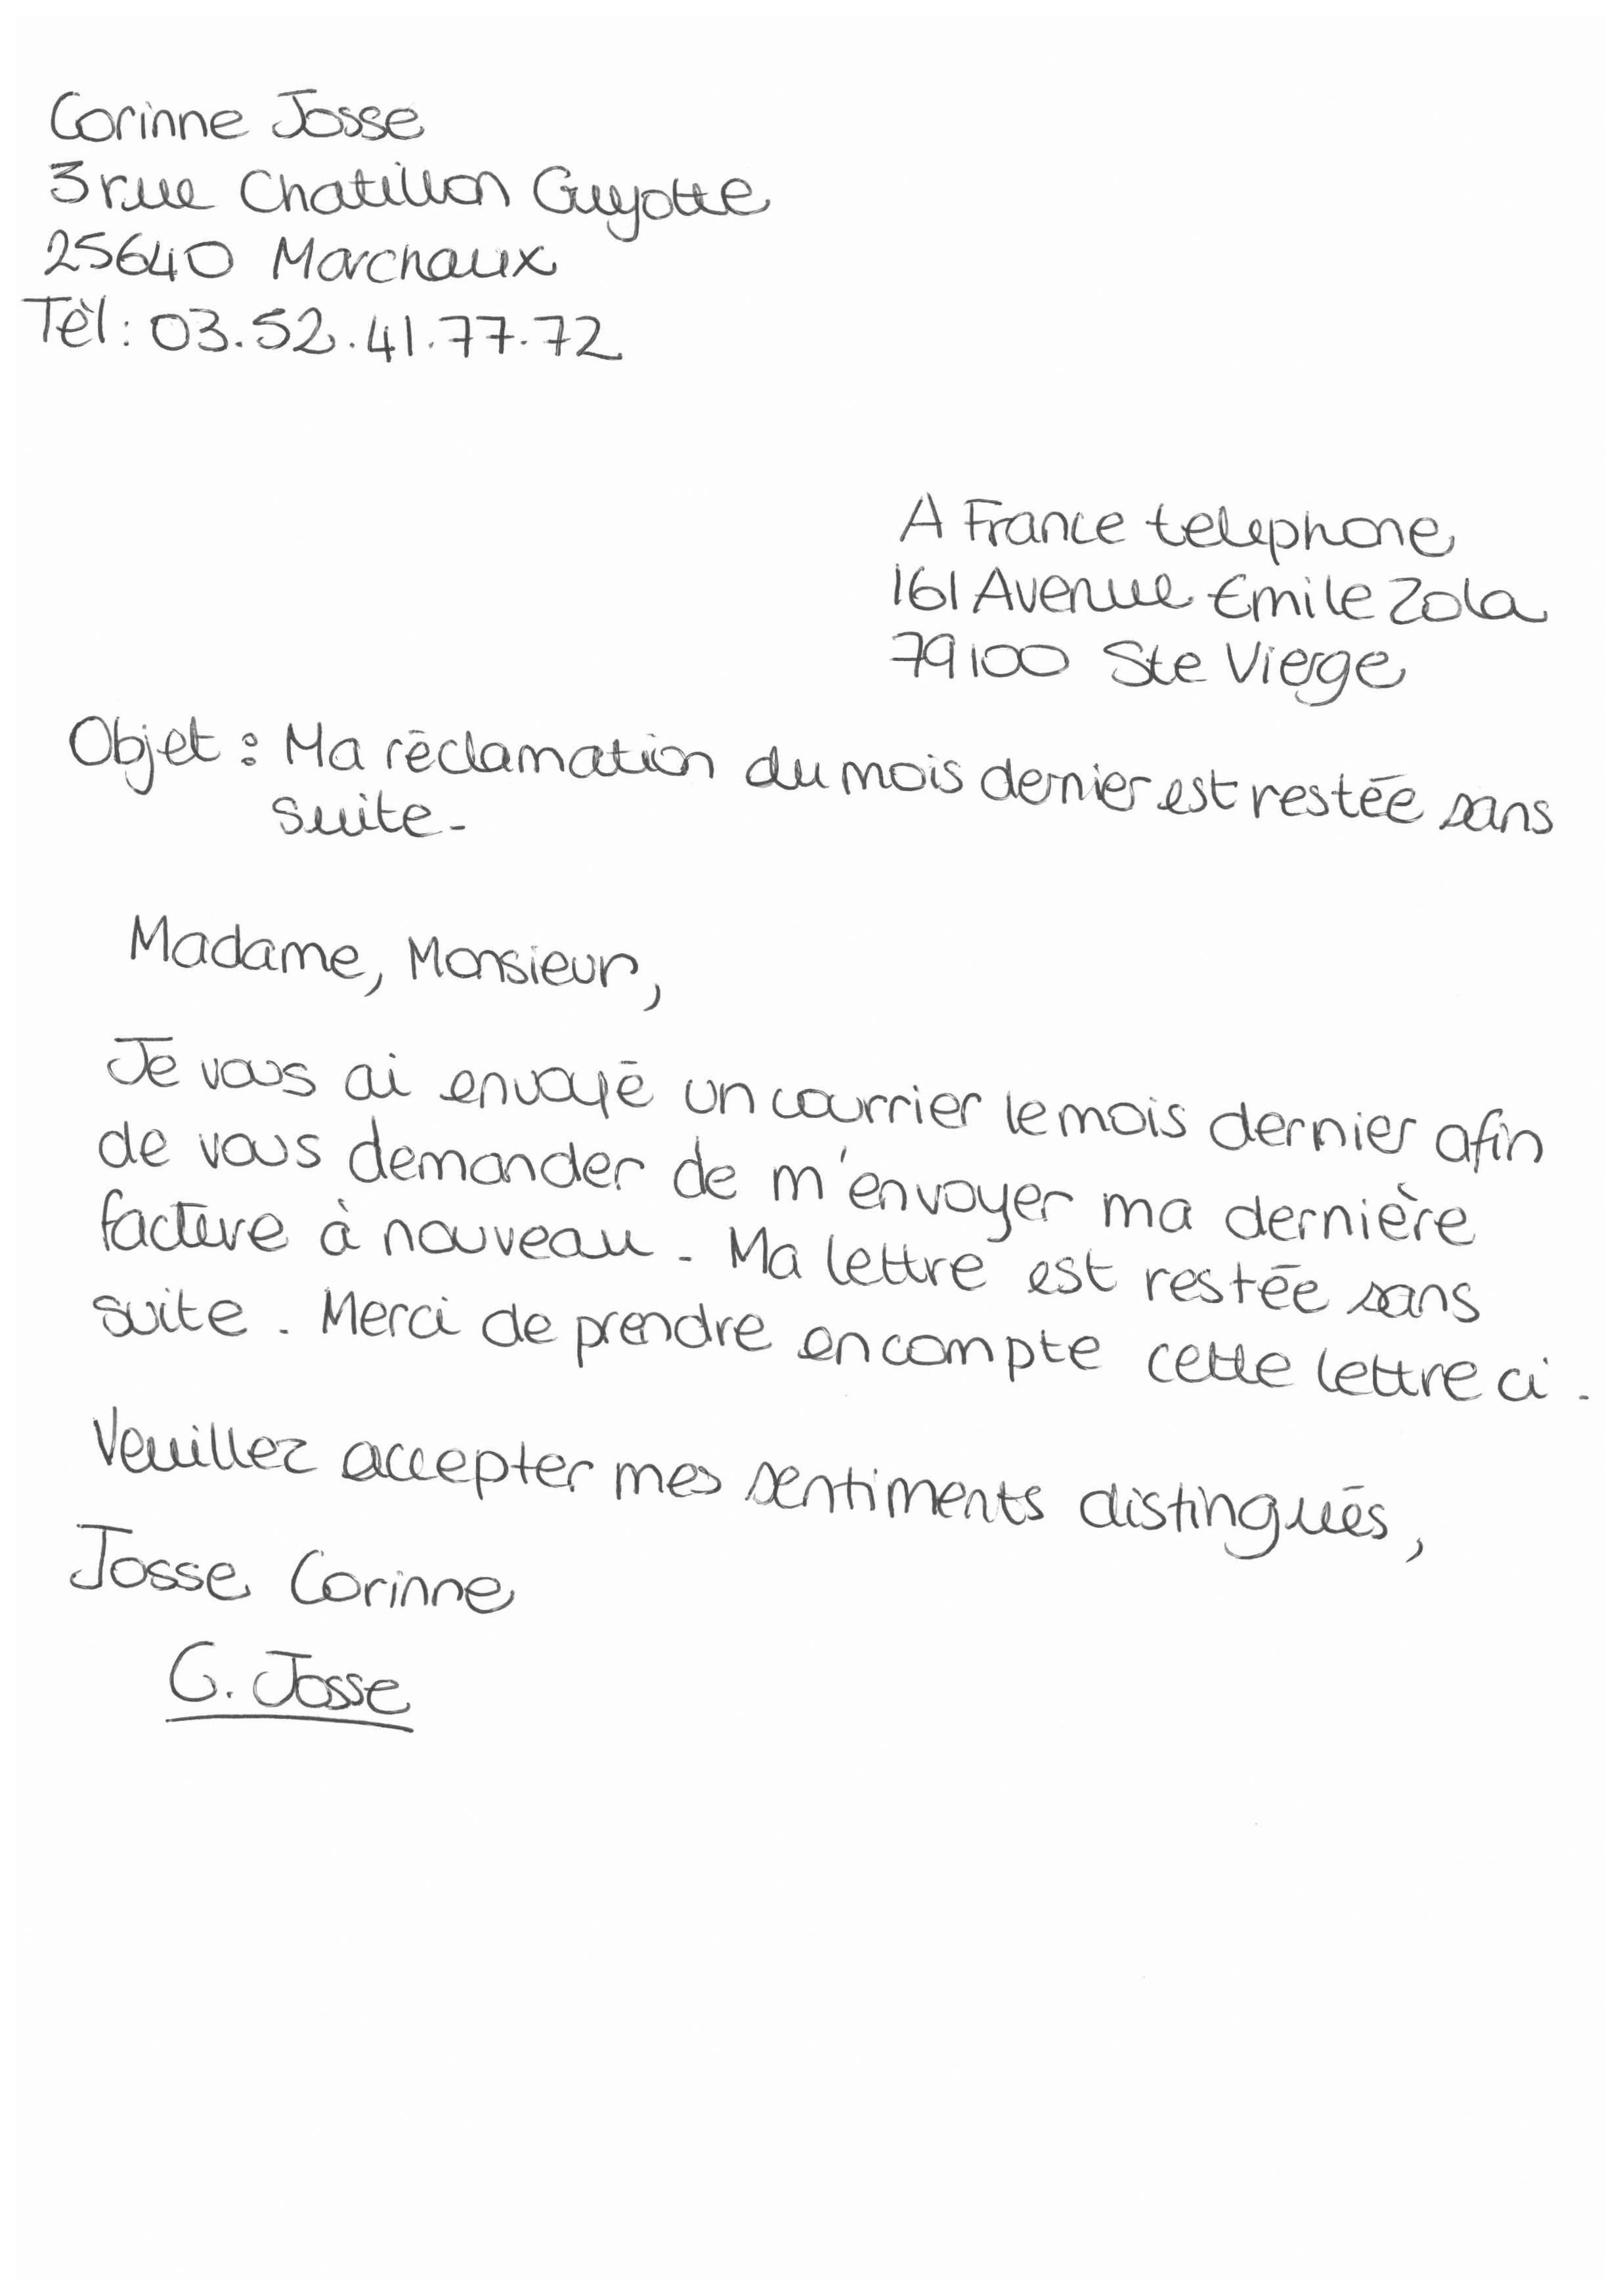 Corinne Josse
3 rue Chatillon Guyotte
25640 Marchaux
Tèl : 03.52.41.77.72
A France telephone
161 Avenue Emile Zola
79100 Ste Vierge
Objet : Ma réclamation du mois dernier est restée sans
suite.
Madame, Monsieur,
Je vous ai envoyé un courrier le mois dernier afin
de vous demander de m'envoyer ma dernière
facture à nouveau. Ma lettre est restée sans
suite. Merci de prendre en compte cette lettre ci.
Veuillez accepter mes sentiments distingués,
Josse Corinne
C. Josse